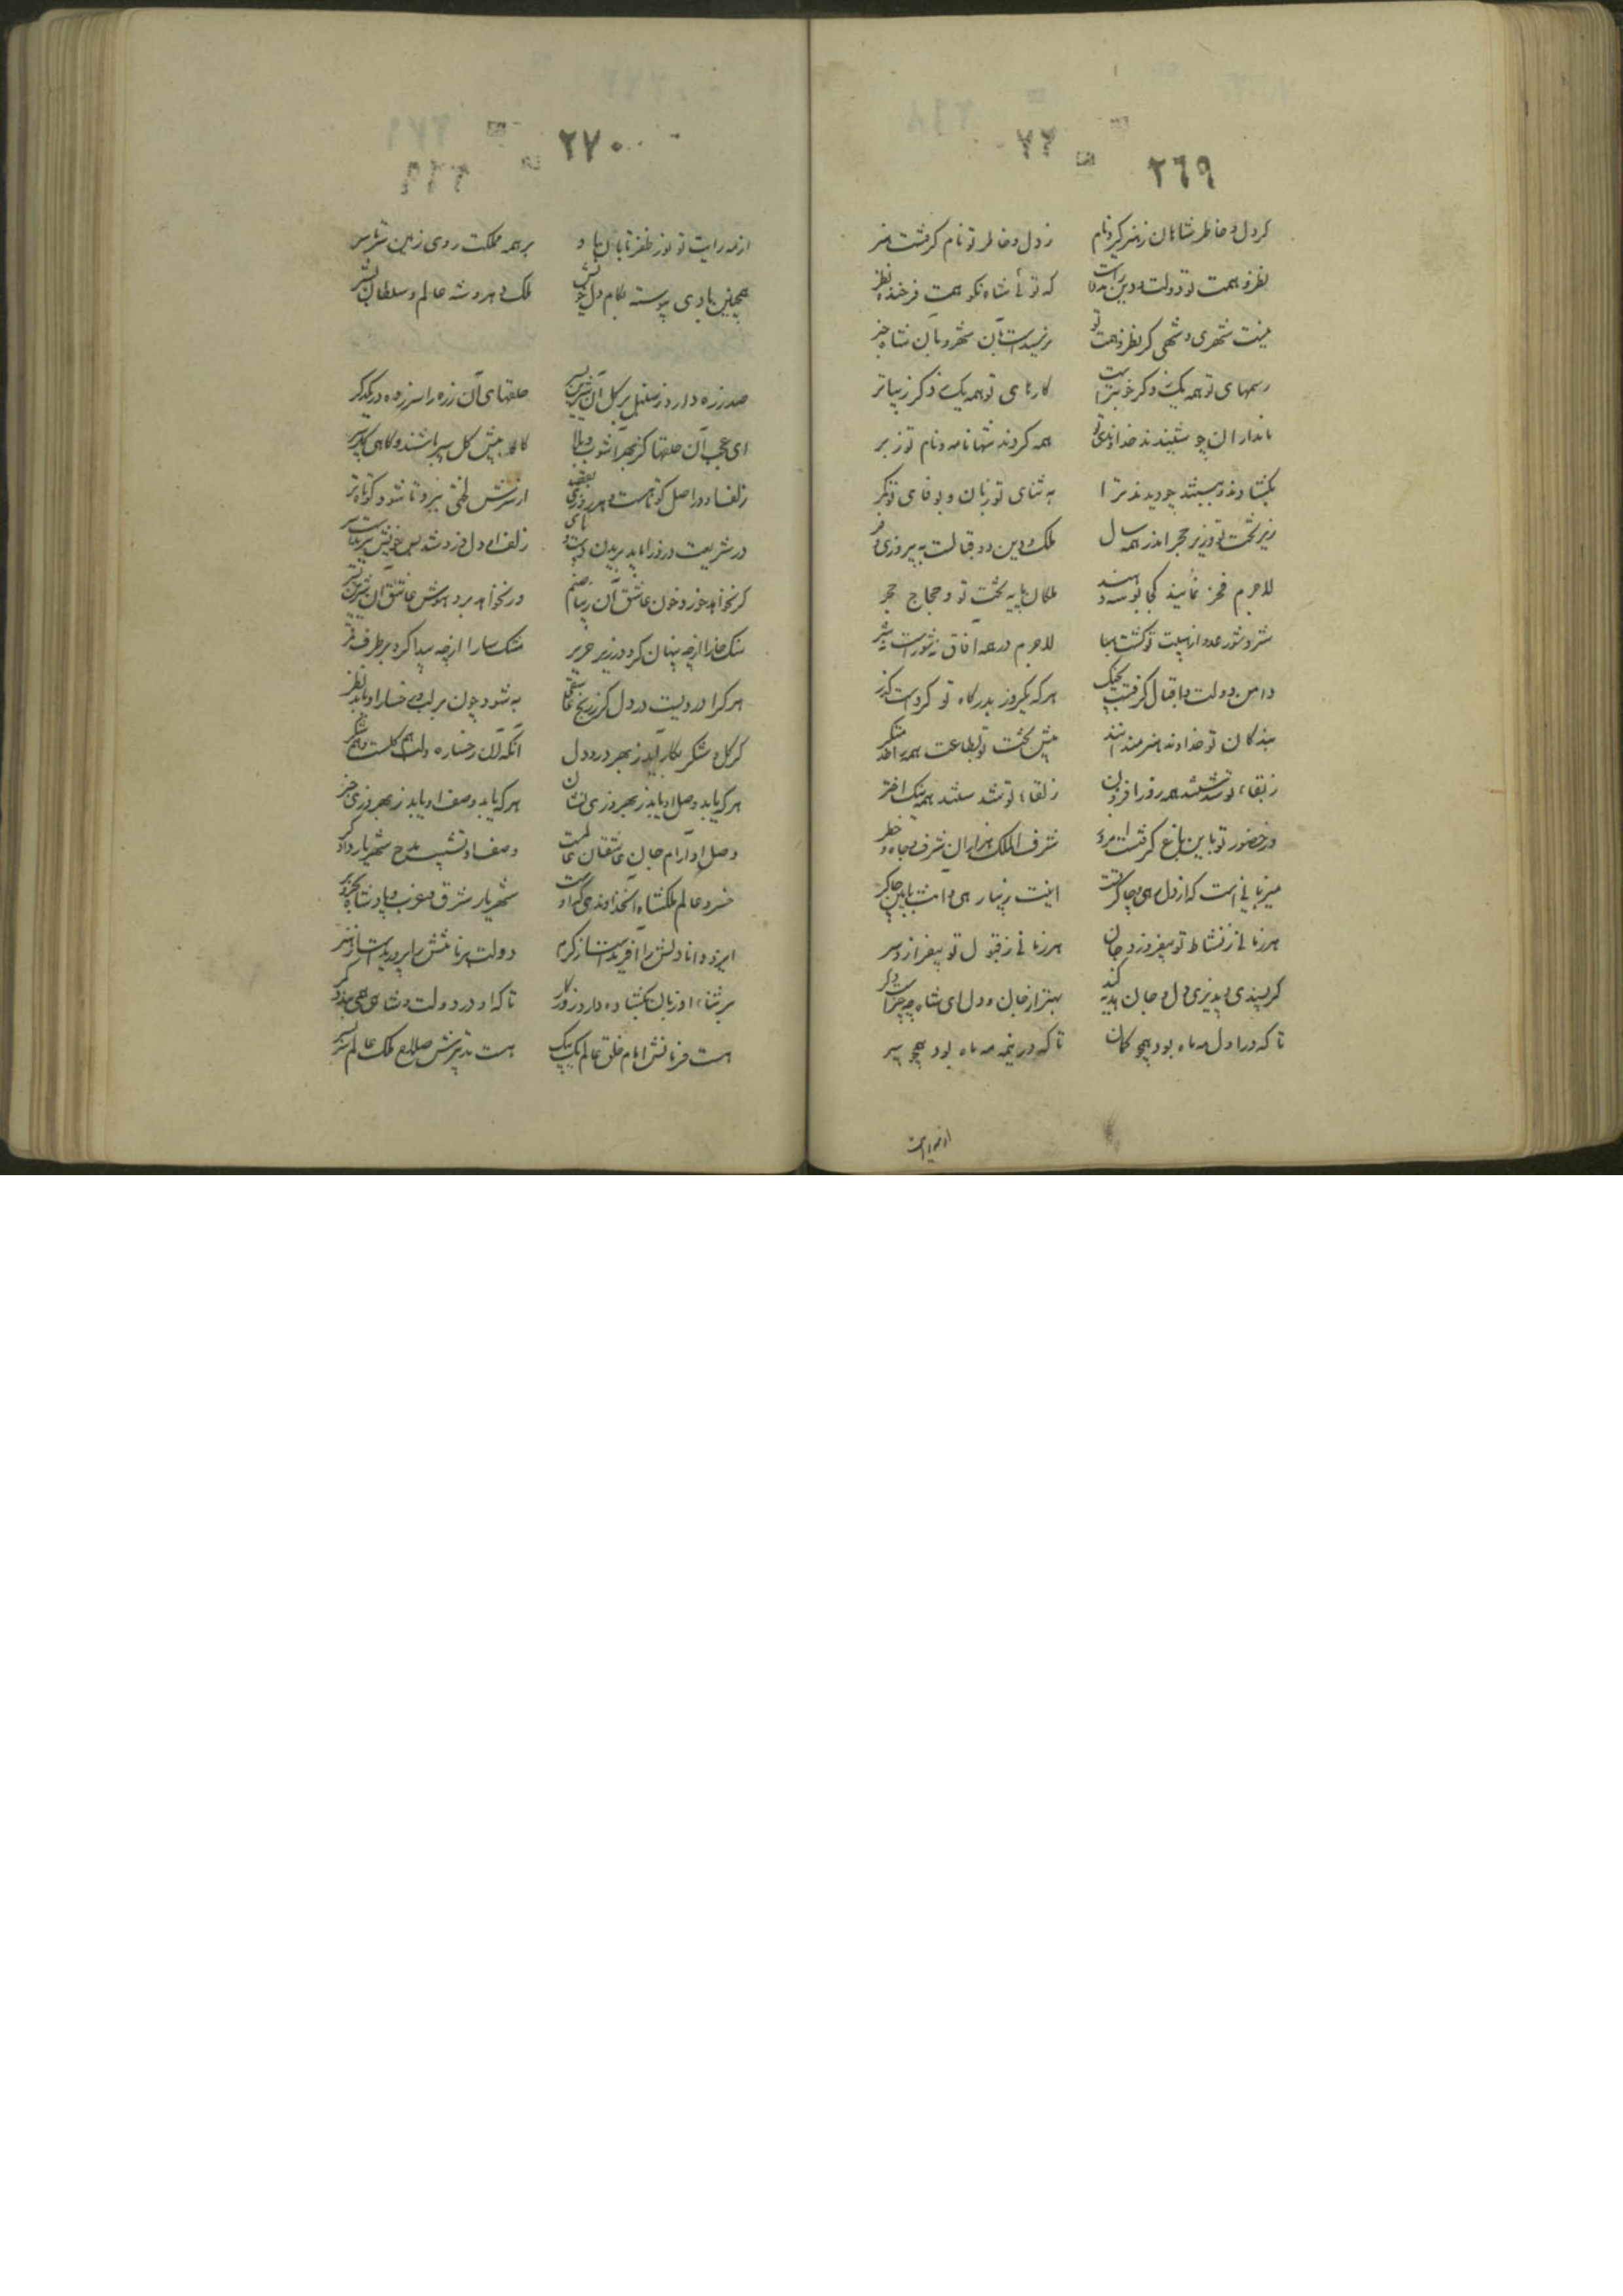 ٢٦٩
گر دل و خاطر شاهان ز هنر گیرد نام ز دل و خاطر تو نام گرفتست هنر
نظر و همت تو دولت و دین که توئی شاه نکو همت فرخنده نظر
نیست شهری و شهی کز نظر و همت تو نرسیدست بان شهر و بان شاه خبر
رسمهای تو همه یک ز دگر خوبترست کارهای تو همه یک ز دگر زیباتر
نامداران چو شنیدند خداوندی تو همه کردند شهانامه و نام تو ز بر
بگشادند و ببستند چو دیدند ترا به ثنای تو زبان و بوفای تو کمر
زیر تخت تو و زیر حجر اندر همه سال ملک و دین دو قبالست به پیروزی و فر
لاجرم فخر نمایند کجا بوسه دهند ملکان پایه تخت تو و حجاج حجر
شر و شور عدو از هیبت تو گشت هبا لاجرم در همه آفاق نه شورست نه شر
دامن دولت و اقبال گرفتست بچنگ هر که یکروز بدرگاه تو کردست گذر
بندگان تو خداوند هنرمندانند پیش تخت تو بطاعت همه
ز بقاء تو شدستند همه روز افزون ز لقاء تو شدستند همه نیک اختر
در حضور تو باین باغ گرفتست امروز شرف الملک هنرایران شرف و جاه و خطر
میزبانی است که از دل رهی و چاکر تست اینت زیبا رهی و اینت بایین چاکر
هر زمانی ز نشاط تو بیفروزد جان هر زمانی ز قبول تو بیفرازد سر
گر پسندی و پذیری دل و جان هدیه کند بهتر از جان و دل ای شاه چه چیزست دگر
تا که در اول مه ماه بود همچو کمان تا که در نیمه مه ماه بود همچو سپر
٢٧٠
از مه رایت تو نور ظفر تابان باد بر همه مملکت روی زمین سرتاسر
همچنین بادی پیوسته بکام دل خویش ملک دهر و شه عالم و سلطان بشر
صد زره دارد ز سنبل بر گل آن شیرین پسر حلقهای آن زره را سر زده در یکدگر
ای عجب آن حلقها کز بهر آشوب و بلا گاه پیش گل سپر باشند و گاهی پرده‌در
زلف او در اصل کوتاهست و هر روزی بقصد از سرش لختی ببرد تا شود کوتاه‌تر
در شریعت دزد را باید بریدن دست و پای زلف او دل دزد شد پس چون بریدستست سر
گر نخواهد خورد خون عاشق آن زیبا صنم ور نخواهد برد هوش عاشق آن شیرین پسر
سنگ خارا از چه پنهان کرد در زیر حریر مشک سارا از چه پیدا کرد بر طرف قمر
هر کرا دردیست در دل کز رنج عاشقی به شود چون بر لب و رخسار او یابد نظر
گر گل و شکر بکار آید ز بهر درد دل آنکه آن رخساره و لب هم گلست و هم شکر
هر که یابد وصل او یابد ز بهروزی نشان هر که یابد وصف او یابد ز بهروزی خبر
وصل او آرام جان عاشقان عالمست وصف او تشبیب مدح شهریار دادگر
خسرو عالم ملکشاه آن خداوندی که اوست شهریار شرق و غرب و پادشاه بحر و بر
ایزد دانا دلش را آفریدست از کرم دولت برنا تنش را پروریدست از هنر
بر ثناء او زبان بگشاده دارد روزگار تا که او در دولت و شاهی همی بندد کمر
هست فرمانش امام خلق عالم یک بیک هست تدبیرش صلاح ملک عالم سر بسر